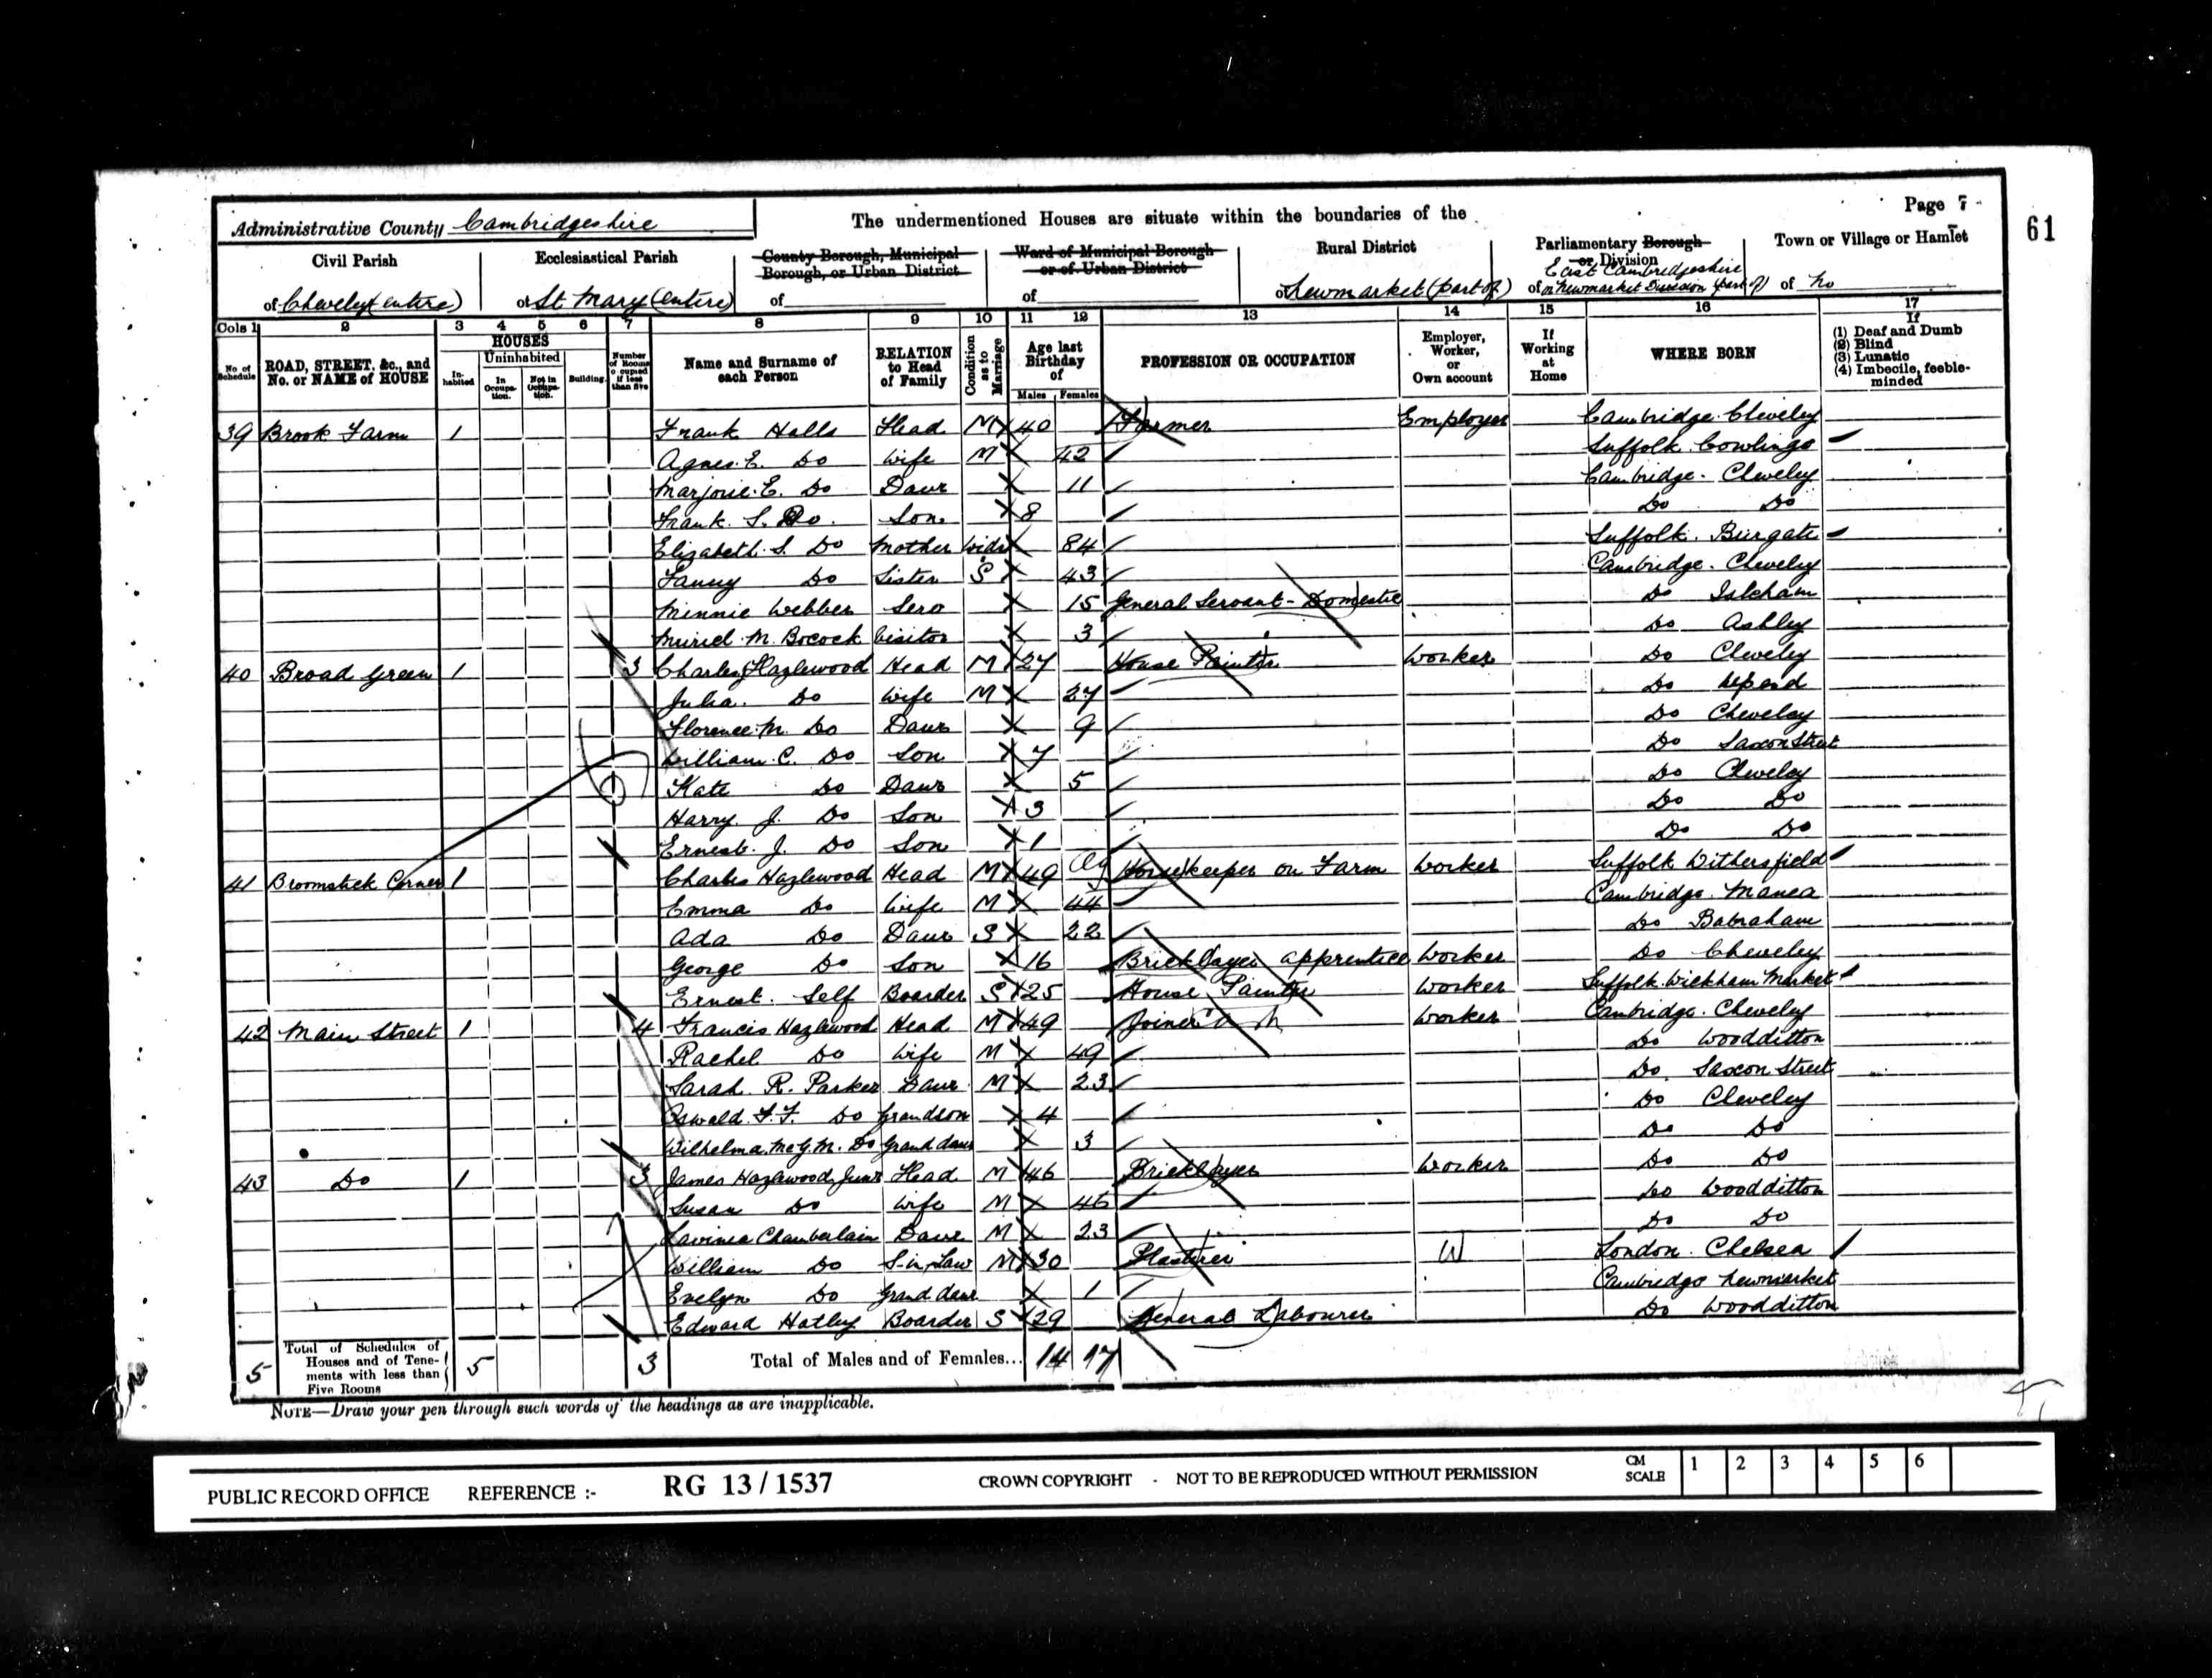 Page 7
61
Administrative County Cambridgeshire
The undermentioned Houses are situate within the boundaries of the
Civil Parish
of Cheveley (entire)
Ecclesiastical Parish
of St Mary (entire)
County Borough, Municipal Borough, or Urban District
of
Ward of Municipal Borough or of Urban District
of
Rural District
of Newmarket (part of)
Parliamentary Borough or Division
of East Cambridgeshire or Newmarket Division (part of)
Town or Village or Hamlet
of No
Cols 1 2 3 4 5 6 7 8 9 10 11 12 13 14 15 16 17
No of Schedule
ROAD, STREET, &c., and No. or NAME of HOUSE
HOUSES
Inhabited
Uninhabited
In Occupation.
Not in Occupation.
Building.
Number of Rooms occupied if less than five
Name and Surname of each Person
RELATION to Head of Family
Condition as to Marriage
Age last Birthday of
Males Females
PROFESSION OR OCCUPATION
Employer, Worker, or Own account
If Working at Home
WHERE BORN
If
(1) Deaf and Dumb
(2) Blind
(3) Lunatic
(4) Imbecile, feeble-minded
39 Brook Farm 1 Frank Halls Head M 40 Farmer Employer Cambridge. Cheveley
Agnes. E. Do Wife M 42 Suffolk. Cowlinge
Marjorie. E. Do Daur 11 Cambridge. Cheveley
Frank. S. Do. Son. 8 Do Do
Elizabeth. S. Do Mother Widr 84 Suffolk. Burgate
Fanny Do Sister S 43 Cambridge. Cheveley
Minnie Webber Serv 15 General Servant - Domestic Do Isleham
Muriel. M. Bocock Visitor 3 Do Ashley
40 Broad Green 1 3 Charles Hazlewood Head M 27 House Painter Worker Do Cheveley
Julia. Do Wife M 27 Do
Florence. M. Do Daur 9 Do Cheveley
William. C. Do Son 7 Do Saxon Street
Kate Do Daur 5 Do Cheveley
Harry. J. Do Son 3 Do Do
Ernest. J. Do Son 1 Do Do
41 Broomstick Corner 1 Charles Hazlewood Head M 49 Ag Horsekeeper on Farm Worker Suffolk Withersfield
Emma Do Wife M 44 Cambridge. Manea
Ada Do Daur S 22 Do Babraham
George Do Son 16 Bricklayer apprentice Worker Do Cheveley
Ernest. Self Boarder S 25 House Painter Worker Suffolk. Wickham Market
42 Main Street 1 4 Francis Hazlewood Head M 49 Joiner Worker Cambridge. Cheveley
Rachel Do Wife M 49 Do Woodditton
Sarah. R. Parker Daur M 23 Do. Saxon Street
Oswald. F. F. Do Grandson 4 Do Cheveley
Wilhelma. McG. M. Do Grand daur 3 Do Do
43 Do 1 3 James Hazlewood Junr Head M 46 Bricklayer Worker Do Do
Susan Do Wife M 46 Do Woodditton
Lavinia Chamberlain Daur M 23 Do Do
William Do S-in-Law M 30 Plasterer W London. Chelsea
Evelyn Do Grand daur 1 Cambridge Newmarket
Edward Hatley Boarder S 29 General Labourer Do Woodditton
5 Total of Schedules of Houses and of Tenements with less than Five Rooms 5 3 Total of Males and of Females... 14 17
NOTE—Draw your pen through such words of the headings as are inapplicable.
PUBLIC RECORD OFFICE REFERENCE :- RG 13/1537 CROWN COPYRIGHT - NOT TO BE REPRODUCED WITHOUT PERMISSION
CM SCALE 1 2 3 4 5 6